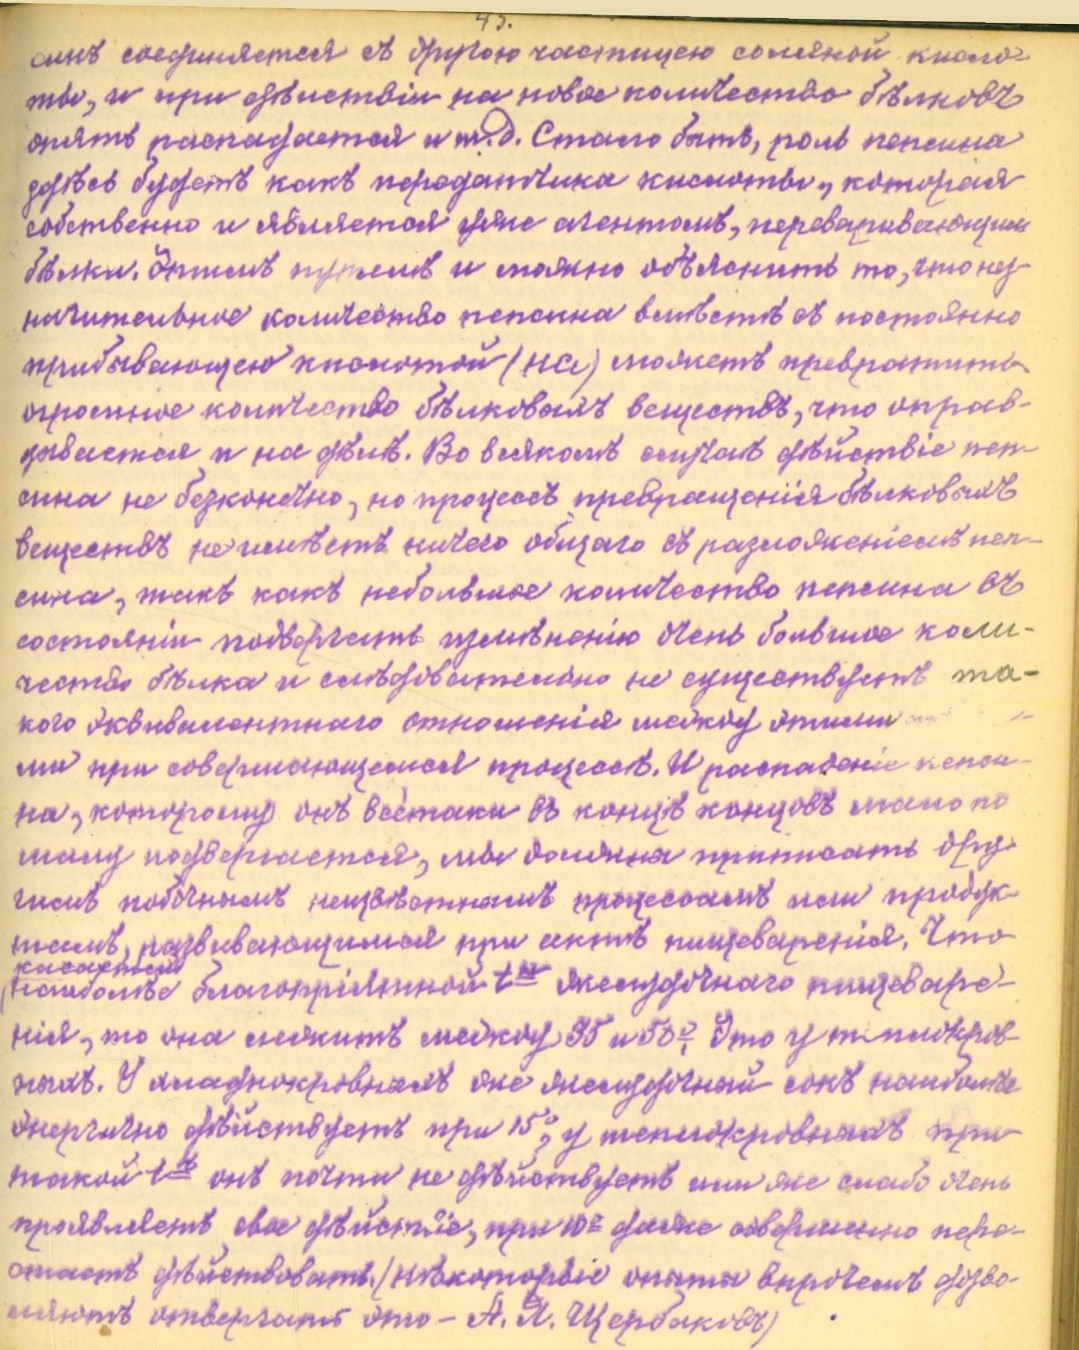 45.
синъ соединяется съ другою частицею соляной кисло-
ты, и при дѣйствіи на новое количество бѣлковъ
опять распадается и т.д. Стало быть, роль пепсина
здѣсь будетъ какъ передатчика кислоты, которая
собственно и является уже агентомъ, переваривающимъ
бѣлки. Этимъ путемъ и можно объяснить то, что нез-
начительное количество пепсина вмѣстѣ съ постоянно
прибывающею кислотой (HCl) можетъ превратить
огромное количество бѣлковыхъ веществъ, что оправ-
дывается и на дѣлѣ. Во всякомъ случаѣ дѣйствіе пеп-
сина не безконечно, но процессъ превращенія бѣлковыхъ
веществъ не имѣетъ ничего общаго съ разложеніемъ пеп-
сина, такъ какъ небольшое количество пепсина въ
состояніи подвергать измѣненію очень большое коли-
чество бѣлка и слѣдовательно не существуетъ та-
кого эквивалентнаго отношенія между этими
ми при совершающемся процессѣ. И распаденіе пепси-
на, которому онъ всётаки въ концѣ концовъ мало по
малу подвергается, мы должны приписать дру-
гимъ побочнымъ неизвѣстнымъ процессамъ или продук-
тамъ, развивающимся при актѣ пищеваренія. Что
касается
наиболѣе благопріятной tы желудочнаго пищеваре-
нія, то она лежитъ между 35 и 50°. Это у теплокров-
ныхъ. У хладнокровныхъ же желудочный сокъ наиболѣе
энергично дѣйствуетъ при 15°, у теплокровныхъ при
такой tѣ онъ почти не дѣйствуетъ или же слабо очень
проявляетъ свое дѣйствіе, при 10° даже совершенно пере-
стаетъ дѣйствовать. (Нѣкоторые опыты впрочемъ дозво-
ляютъ отвергать это – А. Я. Щербаковъ)